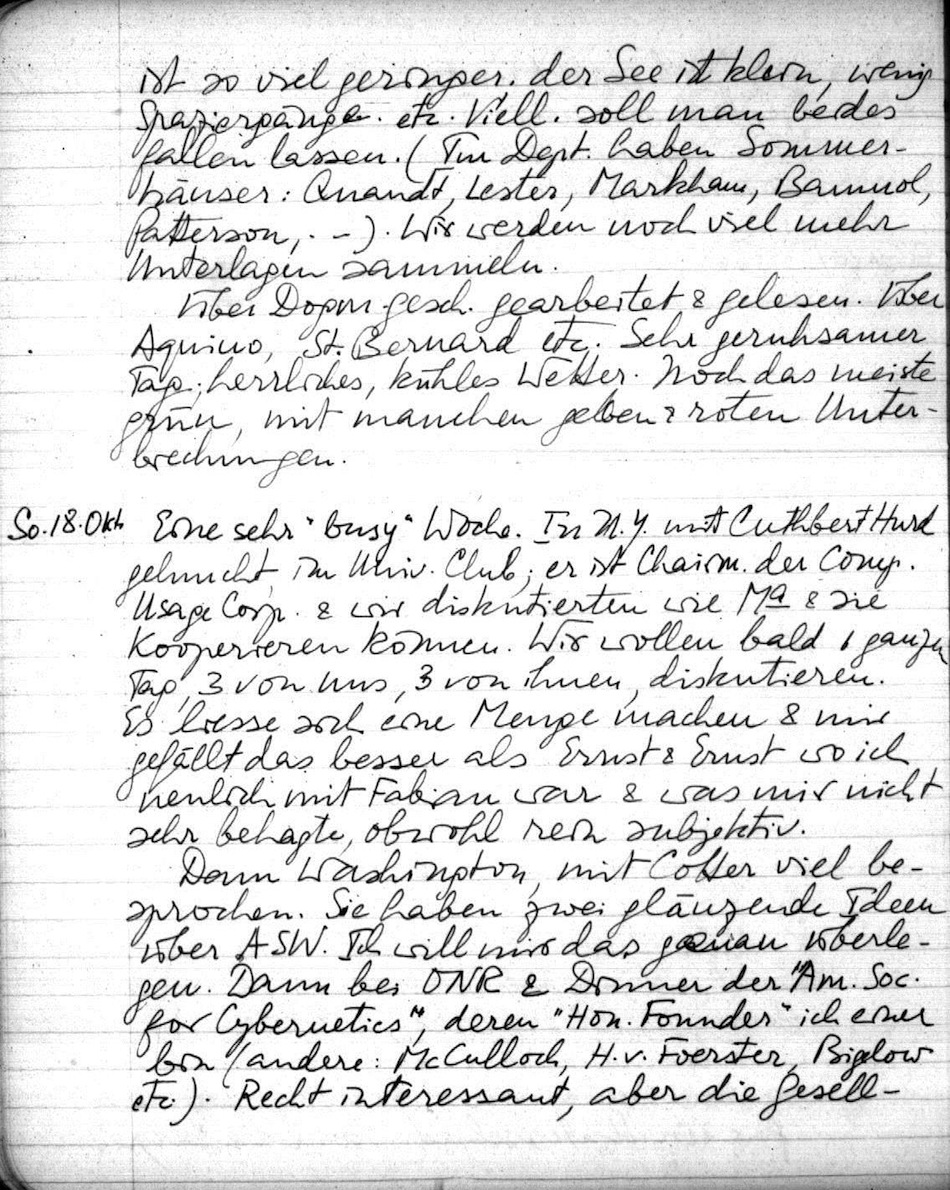 ist so viel geringer, der See ist klein, wenig
Spaziergänge. etc. Viell. soll man beides
fallen lassen. (Im Dept. haben Sommer-
häuser: Quandt, Lester, Markham, Baumol,
Patterson, . –). Wir werden noch viel mehr
Unterlagen sammeln.
Über Dogm.gesch. gearbeitet & gelesen. Über
Aquino, St. Bernard etc. Sehr geruhsamer
Tag; herrliches, kühles Wetter. Noch das meiste
grün, mit manchen gelben & roten Unter-
brechungen.
So. 18. Okt. Eine sehr "busy" Woche. In N.Y. mit Cuthbert Hurd
geluncht, im Univ. Club; er ist Chairm. der Comp.
Usage Corp. & wir diskutierten wie Ma & sie
Kooperieren können. Wir wollen bald 1 ganzen
Tag, 3 von uns, 3 von ihnen, diskutieren.
Es liesse sich eine Menge machen & mir
gefällt das besser als Ernst & Ernst wo ich
neulich mit Fabian war & was mir nicht
sehr behagte, obwohl rein subjektiv.
Dann Washington, mit Cotter viel be-
sprochen. Sie haben zwei glänzende Ideen
über ASW. Ich will mir das genau überle-
gen. Dann bei ONR & Dinner der "Am. Soc.
for Cybernetics", deren "Hon. Founder" ich einer
bin (andere: McCulloch, H.v. Foerster, Bigelow
etc.). Recht interessant, aber die Gesell-